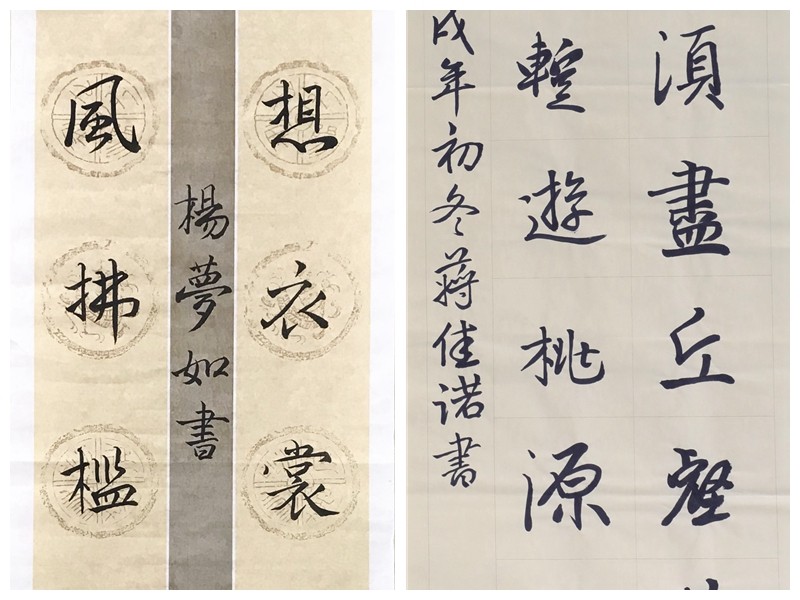 想衣裳
楊夢如書
風拂檻
湏盡丘壑
暫遊桃源
戌年初冬蔣佳诺書